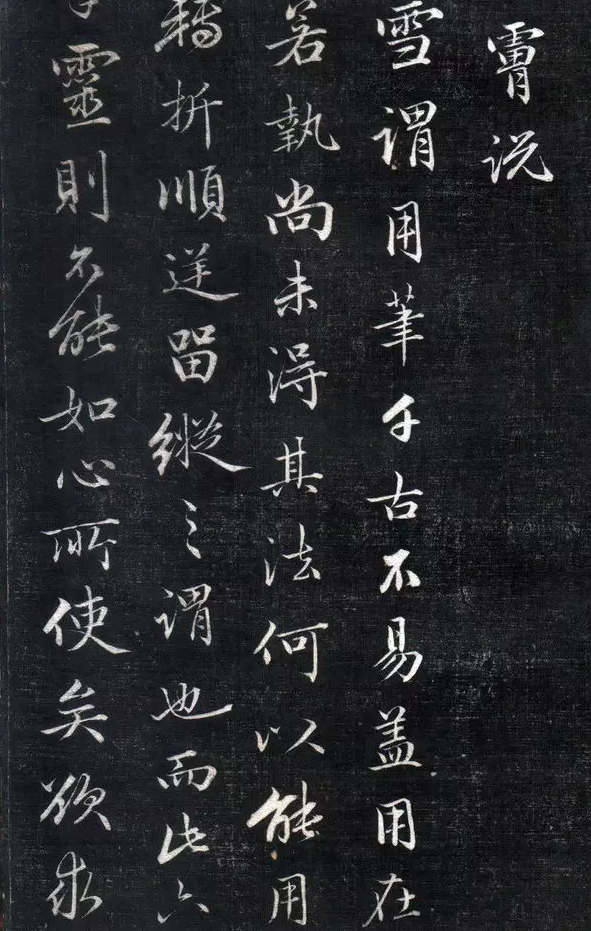 說
雪謂用筆千古不易盖用在
若執尚未得其法何以能用
轉折順逆留縱之謂也而此六
靈則不能如心所使矣欲求